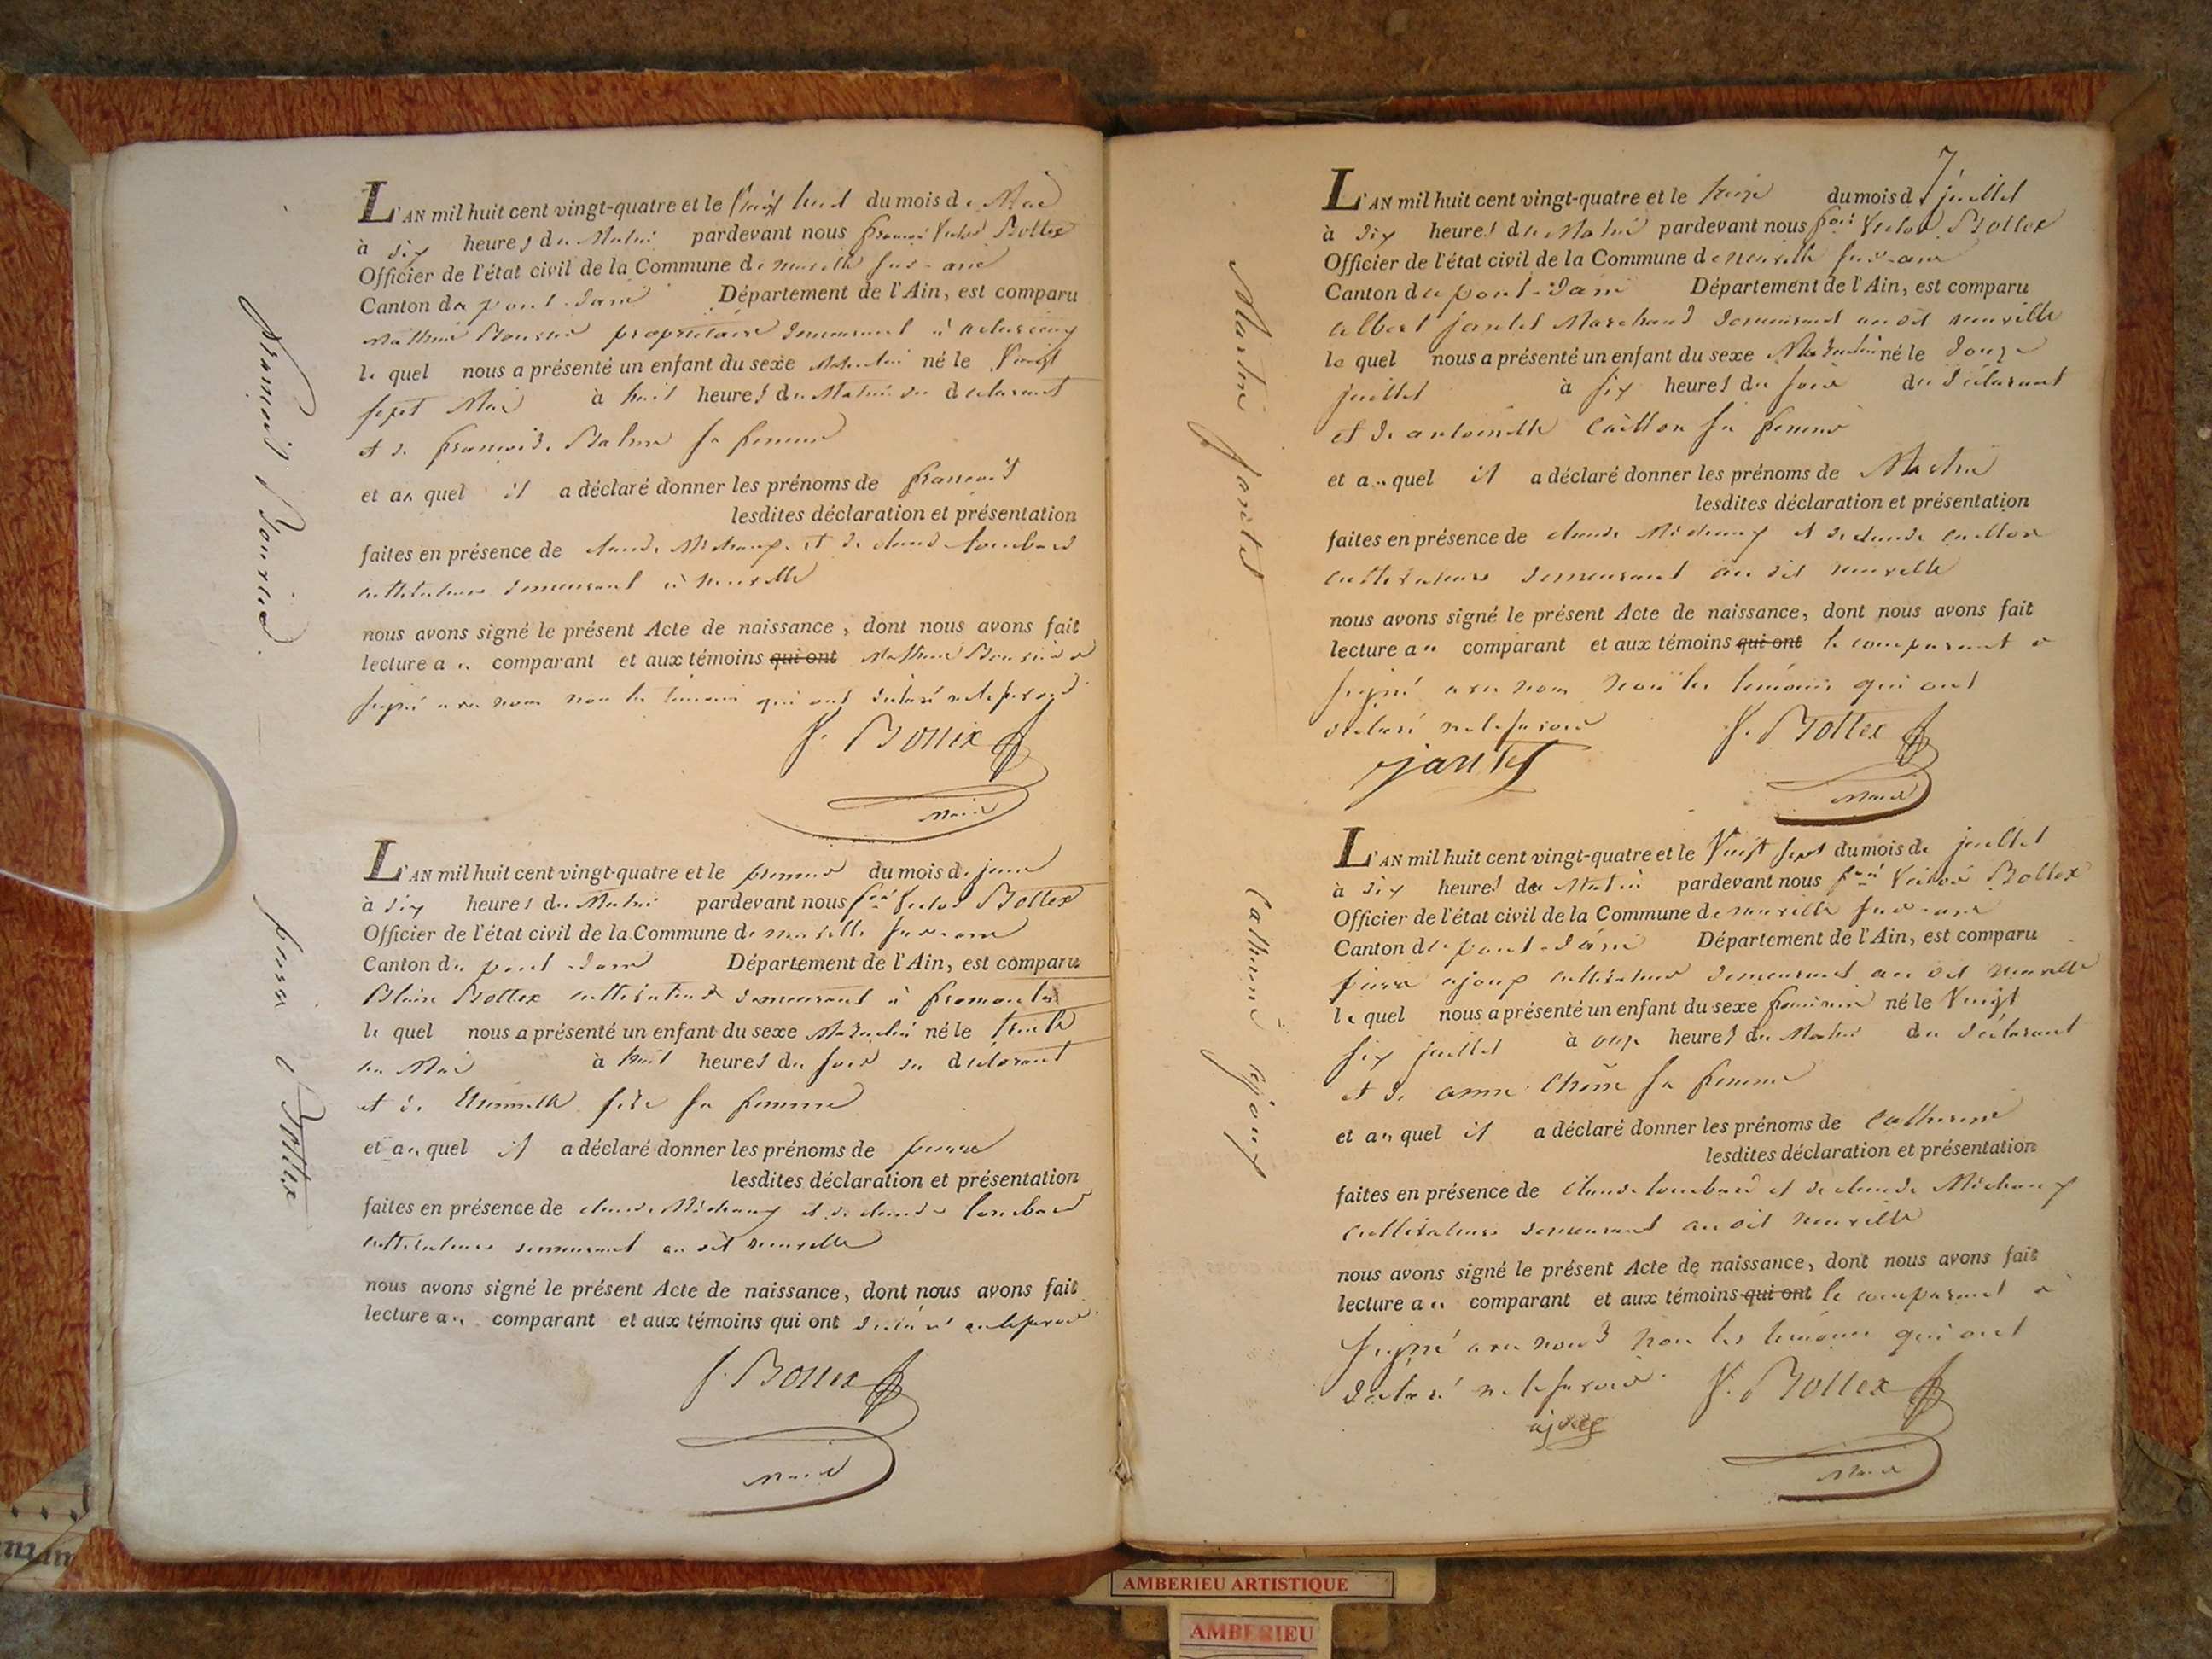 françois Bouvier
L'AN mil huit cent vingt-quatre et le Vingt huit du mois de Mai
à dix heures du Matin pardevant nous françois Victor Bottex
Officier de l'état civil de la Commune de neuville sur-ain
Canton du pont-dain Département de l'Ain, est comparu
Mathieu propriétaire demeurant à
le quel nous a présenté un enfant du sexe Masculin né le Vingt
sept Mai à huit heures du Matin du declarant
et de françoise sa femme
et au quel il a déclaré donner les prénoms de françois
lesdites déclaration et présentation
faites en présence de claude Michaux et de claude lombard
cultivateurs demeurant à neuville
nous avons signé le présent Acte de naissance, dont nous avons fait
lecture au comparant et aux témoins qui ont Mathieu Bouvier a
signé avec nous non les temoins qui ont déclaré ne le savoir
V. Bottex
Maire
pierre Bottex
L'AN mil huit cent vingt-quatre et le premier du mois de juin
à dix heures du Matin pardevant nous fçois Victor Bottex
Officier de l'état civil de la Commune de neuville sur-ain
Canton du pont-dain Département de l'Ain, est comparu
Blaise Bottex cultivateur demeurant à fromentes
le quel nous a présenté un enfant du sexe Masculin né le trente
un Mai à huit heures du soir du declarant
et de sa femme
et au quel il a déclaré donner les prénoms de pierre
lesdites déclaration et présentation
faites en présence de claude Michaux et de claude lombard
cultivateurs demeurant au dit neuville
nous avons signé le présent Acte de naissance, dont nous avons fait
lecture au comparant et aux témoins qui ont déclaré ne le savoir
V. Bottex
Maire
7
Martin jantet
L'AN mil huit cent vingt-quatre et le treize du mois de juillet
à dix heures du Matin pardevant nous fçois Victor Bottex
Officier de l'état civil de la Commune de neuville sur-ain
Canton du pont-dain Département de l'Ain, est comparu
albert jantet Marchand demeurant au dit neuville
le quel nous a présenté un enfant du sexe Masculin né le douze
juillet à six heures du soir du déclarant
et de antoinette caillon sa femme
et au quel il a déclaré donner les prénoms de Martin
lesdites déclaration et présentation
faites en présence de claude Michaux et de claude caillon
cultivateurs demeurant au dit neuville
nous avons signé le présent Acte de naissance, dont nous avons fait
lecture au comparant et aux témoins qui ont le comparant a
signé avec nous non les temoins qui ont
déclaré ne le savoir
jantet
V. Bottex
Maire
Catherine ajoux
L'AN mil huit cent vingt-quatre et le Vingt sept du mois de juillet
à dix heures du Matin pardevant nous fçois Victor Bottex
Officier de l'état civil de la Commune de neuville sur-ain
Canton du pont-dain Département de l'Ain, est comparu
pierre ajoux cultivateur demeurant au dit neuville
le quel nous a présenté un enfant du sexe féminin né le Vingt
six juillet à onze heures du Matin du déclarant
et de anne chêne sa femme
et au quel il a déclaré donner les prénoms de Catherine
lesdites déclaration et présentation
faites en présence de claude lombard et de claude Michaux
cultivateurs demeurant au dit neuville
nous avons signé le présent Acte de naissance, dont nous avons fait
lecture au comparant et aux témoins qui ont le comparant a
signé avec nous non les temoins qui ont
déclaré ne le savoir
ajoux
V. Bottex
Maire
AMBERIEU ARTISTIQUE
AMBERIEU